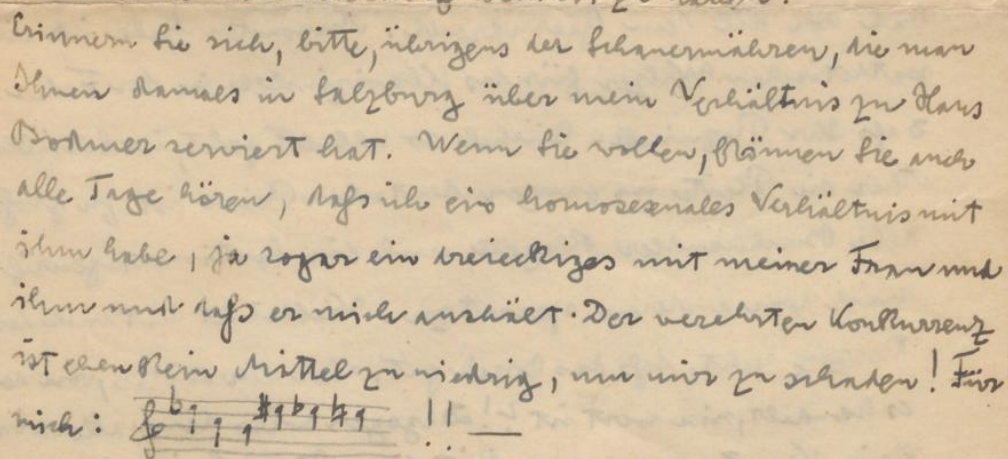 Erinnern Sie sich, bitte, übrigens der Schauermähren, die man
Ihnen damals in Salzburg über mein Verhältnis zu Hans
Bodmer serviert hat. Wenn Sie wollen, können Sie auch
alle Tage hören, dass ich ein homosexuales Verhältnis mit
ihm habe, ja sogar ein dreieckiges mit meiner Frau und
ihm und dass er mich aushält. Der verehrten Konkurrenz
ist eben kein Mittel zu niedrig, um mir zu schaden! Für
mich: !! —